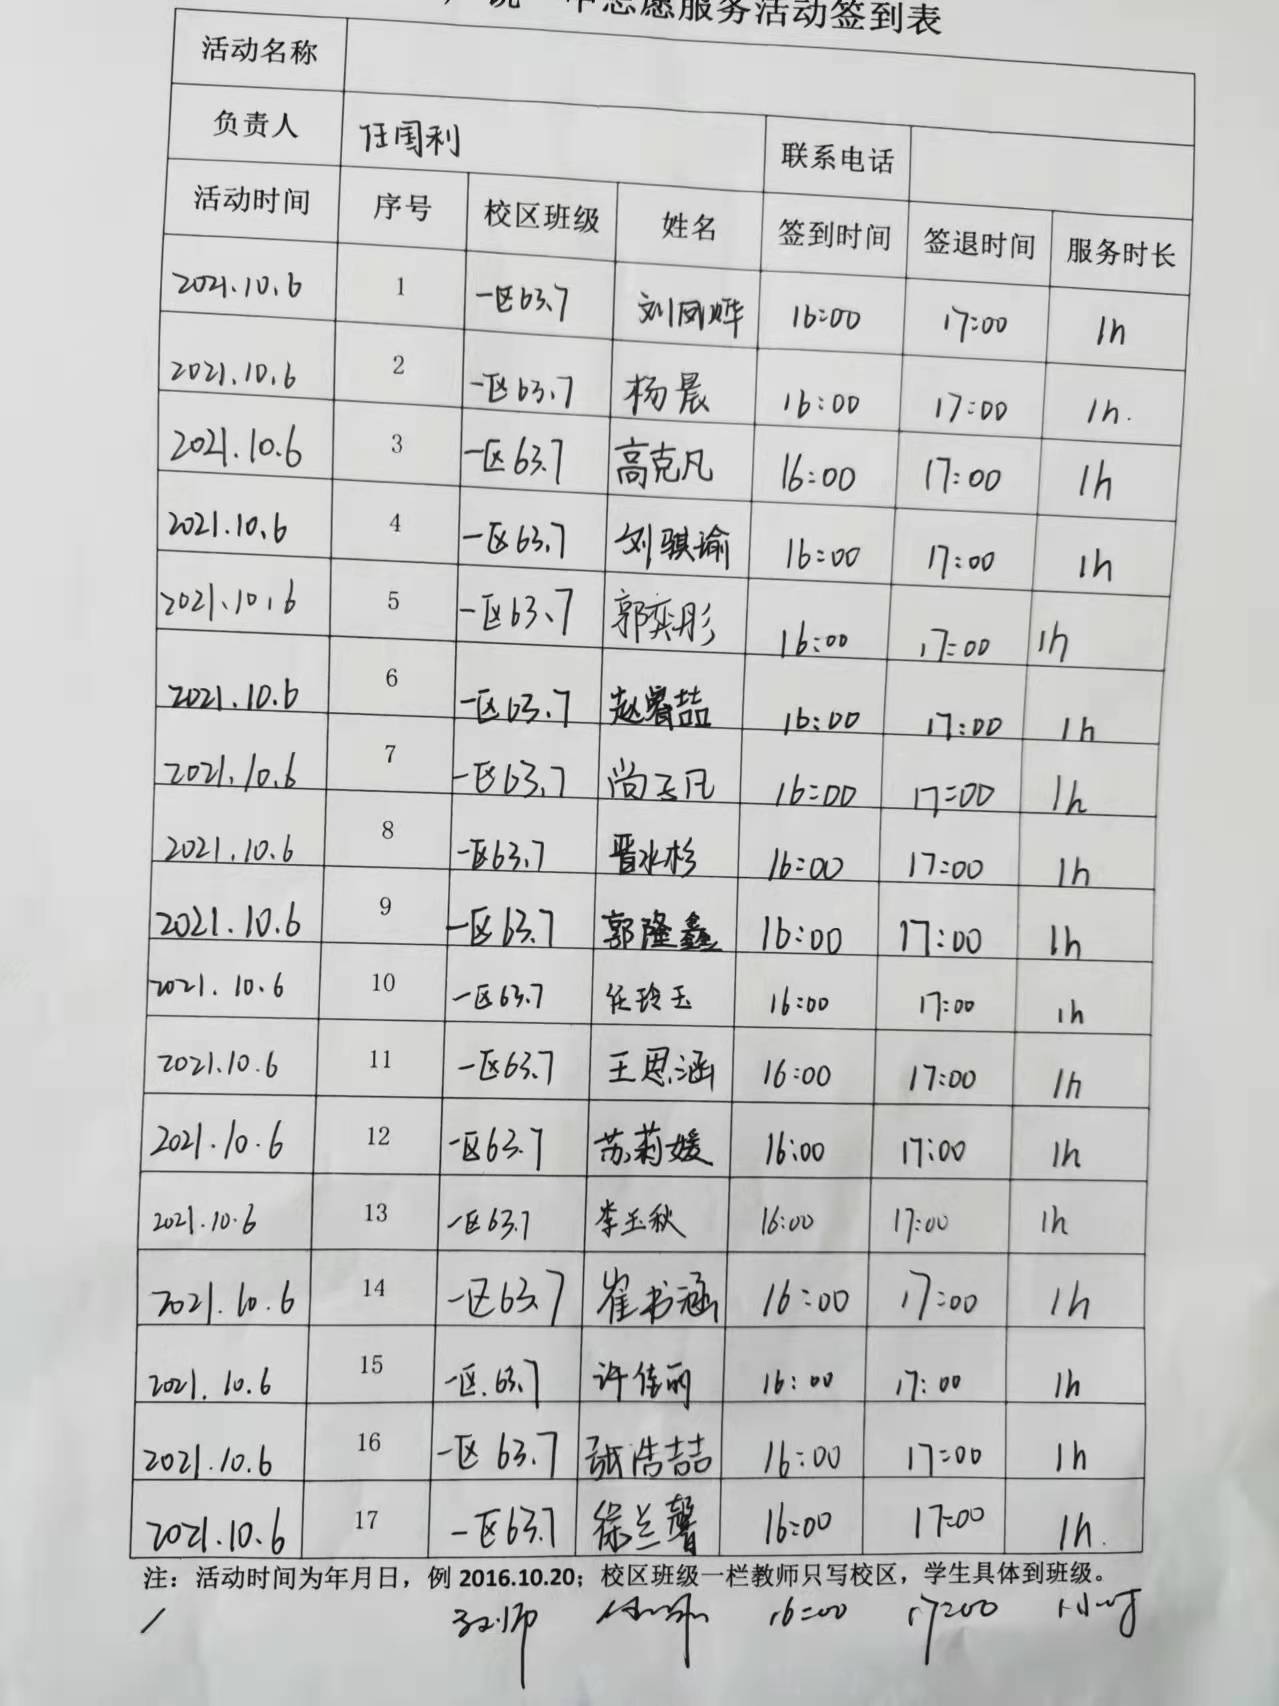 志愿服务活动签到表
活动名称
负责人 任国利 联系电话
活动时间 序号 校区班级 姓名 签到时间 签退时间 服务时长
2021.10.6 1 一区63.7 刘凤烨 16:00 17:00 1h
2021.10.6 2 一区63.7 杨晨 16:00 17:00 1h.
2021.10.6 3 一区63.7 高克凡 16:00 17:00 1h
2021.10.6 4 一区63.7 刘骐瑜 16:00 17:00 1h
2021.10.6 5 一区63.7 郭奕彤 16:00 17:00 1h
2021.10.6 6 一区63.7 赵睿喆 16:00 17:00 1h
2021.10.6 7 一区63.7 尚云凡 16:00 17:00 1h
2021.10.6 8 一区63.7 晋水杉 16:00 17:00 1h
2021.10.6 9 一区63.7 郭隆鑫 16:00 17:00 1h
2021.10.6 10 一区63.7 任玲玉 16:00 17:00 1h
2021.10.6 11 一区63.7 王思涵 16:00 17:00 1h
2021.10.6 12 一区63.7 苏莉媛 16:00 17:00 1h
2021.10.6 13 一区63.7 李玉秋 16:00 17:00 1h
2021.10.6 14 一区63.7 崔书涵 16:00 17:00 1h
2021.10.6 15 一区.63.7 许佳丽 16:00 17:00 1h
2021.10.6 16 一区 63.7 张浩喆 16:00 17:00 1h
2021.10.6 17 一区63.7 徐兰馨 16:00 17:00 1h.
注：活动时间为年月日，例 2016.10.20；校区班级一栏教师只写校区，学生具体到班级。
16:00 17:00 1小时